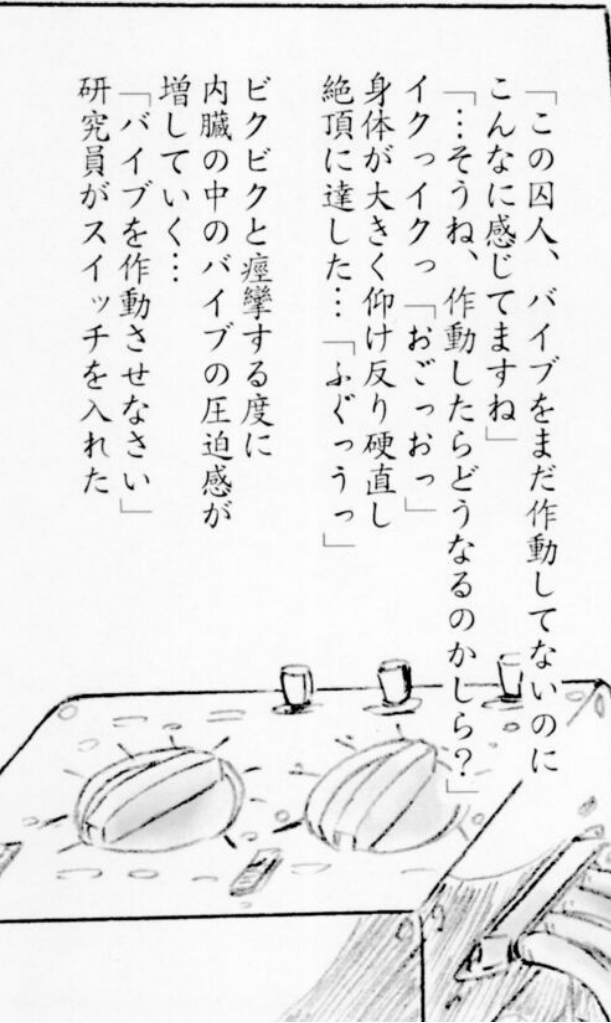 「この囚人、バイブをまだ作動してないのに
こんなに感じてますね」
「…そうね、作動したらどうなるのかしら？」
イクっイクっ「おごっおっ」
身体が大きく仰け反り硬直し
絶頂に達した…「ふぐっうっ」
ビクビクと痙攣する度に
内臓の中のバイブの圧迫感が
増していく…
「バイブを作動させなさい」
研究員がスイッチを入れた